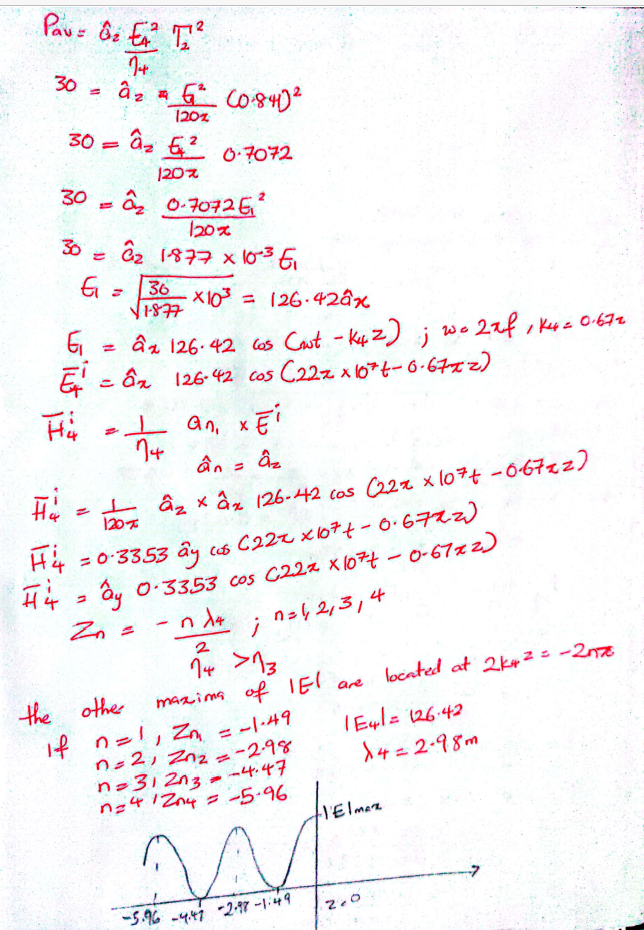 Pav = âz E4² / η4 T2²
30 = âz E1² / 120π (0.841)²
30 = âz E1² / 120π 0.7072
30 = âz 0.7072 E1² / 120π
30 = âz 1.877 × 10-3 E1
E1 = √(30 / 1.877 × 10³) = 126.42 âx
E1 = âx 126.42 cos (wt - k4 z) ; w = 2πf , k4 = 0.67π
E̅4ⁱ = âx 126.42 cos (22π × 10⁷t - 0.67πz)
H̅4ⁱ = 1 / η4 an1 × E̅ⁱ
ân = âz
H̅4ⁱ = 1 / 120π âz × âx 126.42 cos (22π × 10⁷t - 0.67πz)
H̅4ⁱ = 0.3353 ây cos (22π × 10⁷t - 0.67πz)
H̅4ⁱ = ây 0.3353 cos (22π × 10⁷t - 0.67πz)
Zn = - n λ4 / 2 ; n = 1, 2, 3, 4
η4 > η3
the other maxima of |E| are located at 2k4z = -2nπ
If n = 1, Zn1 = -1.49 |E4| = 126.42
n = 2, Zn2 = -2.98 λ4 = 2.98m
n = 3, Zn3 = -4.47
n = 4, Zn4 = -5.96
|E|max
-5.96 -4.47 -2.98 -1.49 z=0